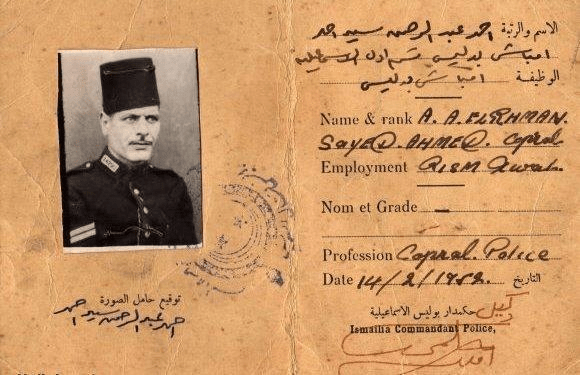 الاسم والرتبة احمد عبد الرحمن سيد احمد
امباشى بوليس قسم اول الاسماعيلية
الوظيفة امباشى بوليس
Name & rank A. A. ELRHMAN.
SAYED. AHMED. Copral
Employment QISM Awal.
Nom et Grade –
Profession Copral. Police
Date 14/2/1952. التاريخ
وكيل حكمدار بوليس الاسماعيلية
Ismailia Commandant Police,
توقيع حامل الصورة
احمد عبد الرحمن سيد احمد